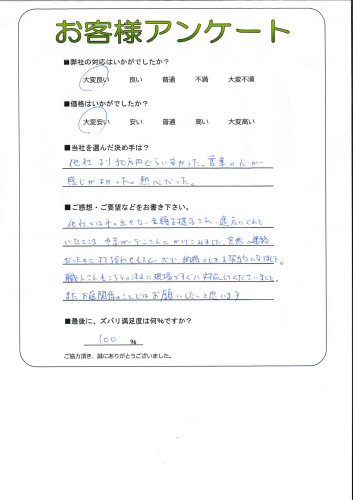 お客様アンケート
■弊社の対応はいかがでしたか?
大変良い 良い 普通 不満 大変不満
■価格はいかがでしたか?
大変安い 安い 普通 高い 大変高い
■当社を選んだ決め手は?
他社より50万円ぐらい安かった。営業の人が
感じがよかった。熱心だった。
■ご感想・ご要望などをお書き下さい。
他社では手の出せない金額を提示され、途方にくれて
いたところ
なったのに打合わせもスムーズで、納得のできる契約になりました。
職人さんもこちらの注文に現場ですぐに対応してくださいました。
またお庭関係のことではお願いしたいと思います
■最後に、ズバリ満足度は何%ですか?
100 %
ご協力頂き、誠にありがとうございました。